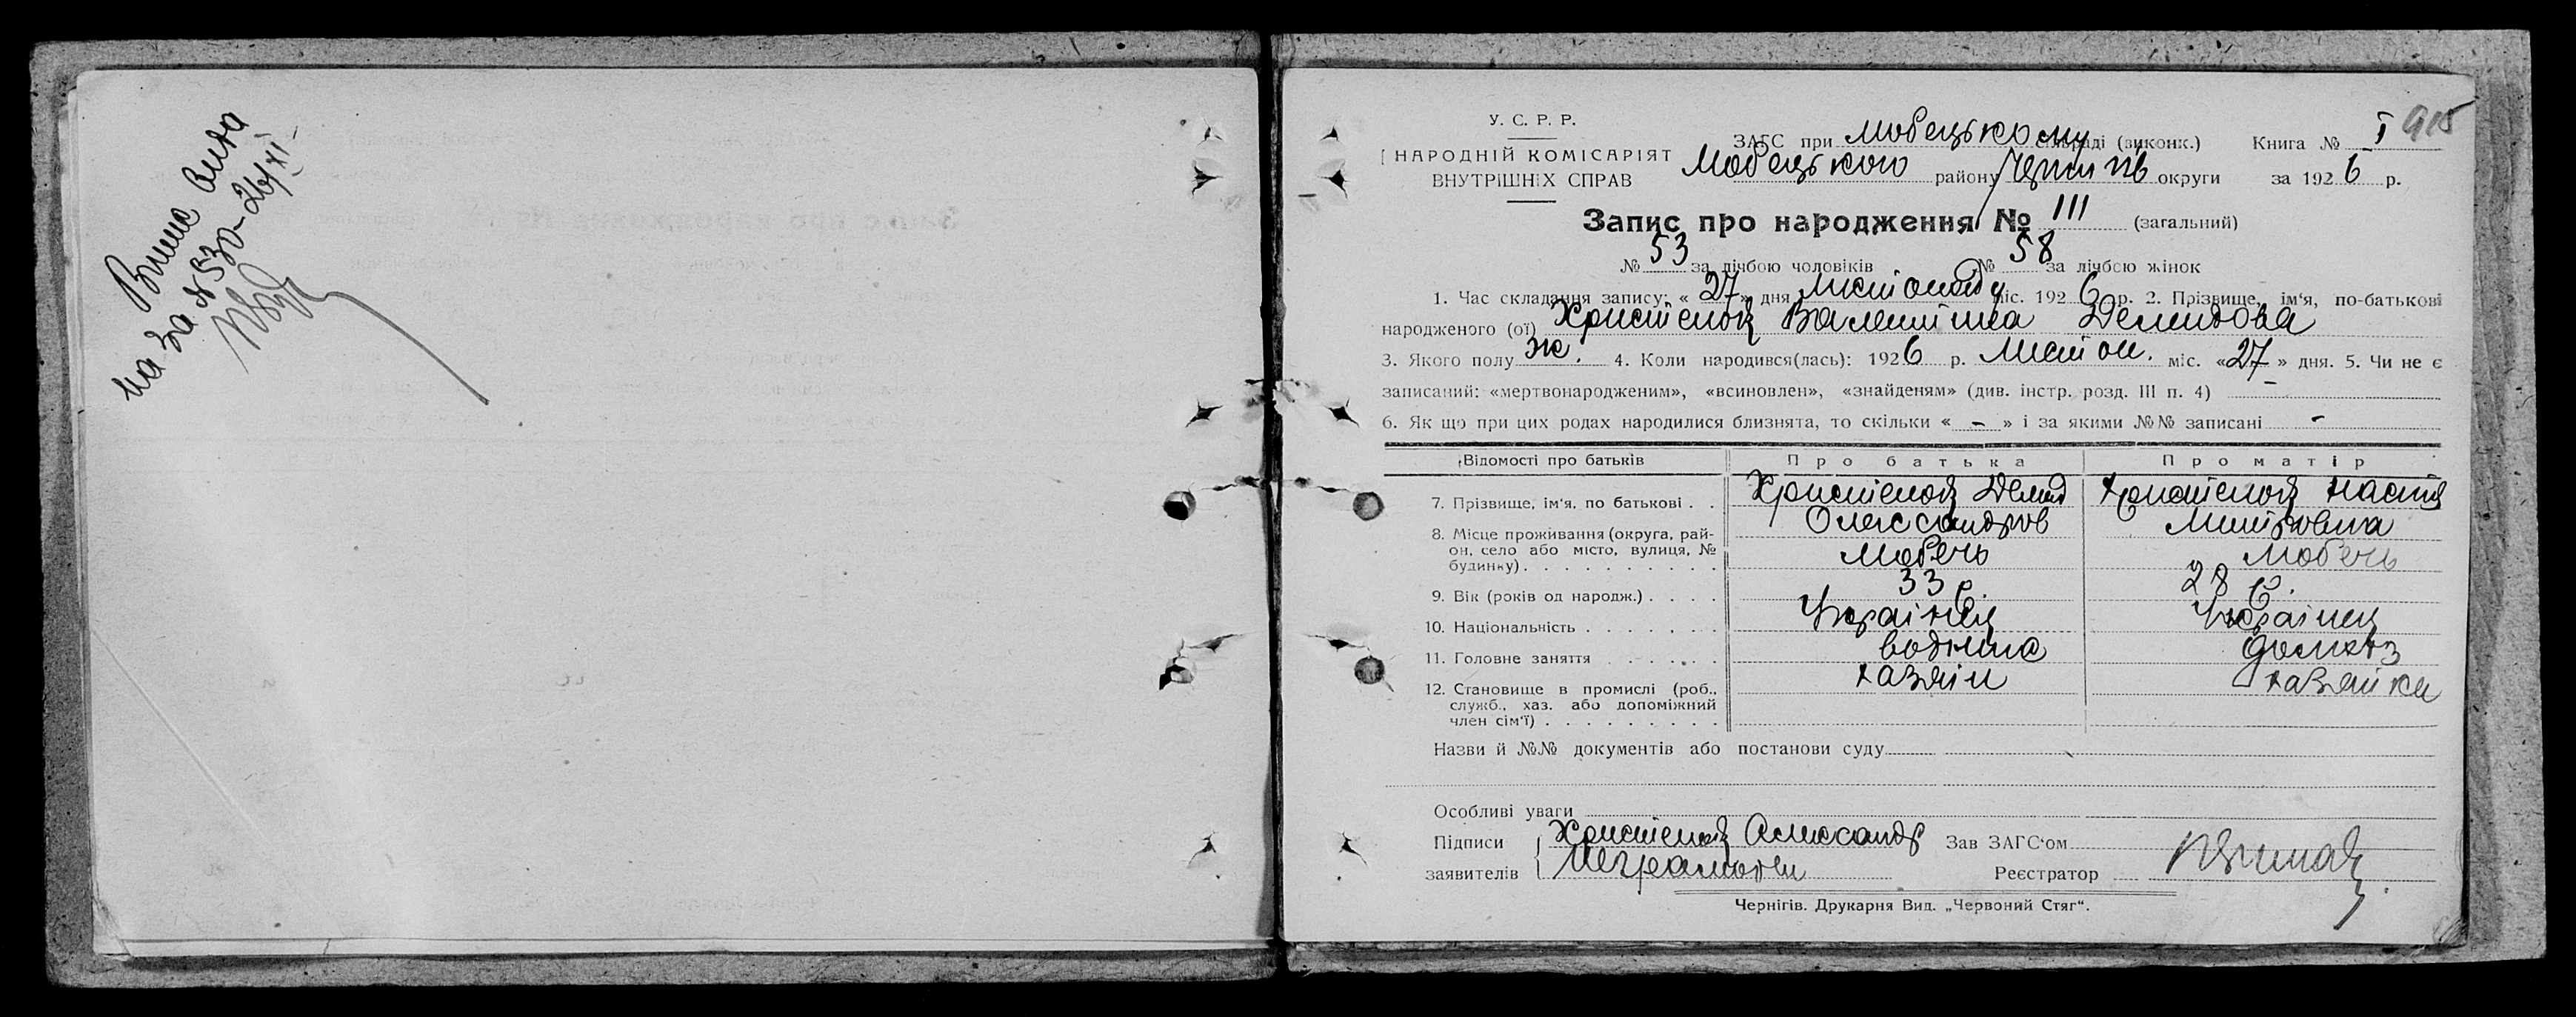 Випис вида
на за № 530-26/XI
У. С. Р. Р.
НАРОДНІЙ КОМІСАРІЯТ
ВНУТРІШНІХ СПРАВ
ЗАГС при Любецькому сельраді (виконк.) Книга № I 915
Любецького району Черніг округи за 1926 р.
Запис про народження № 111 (загальний)
№ 53 за лічбою чоловіків № 58 за лічбою жінок
1. Час складання запису: « 27 » дня листопаду міс. 1926 р. 2. Прізвище, ім'я, по-батькові
народженого (ої) Христіной Валентіна Демидова
3. Якого полу ж. 4. Коли народився(лась): 1926 р. Листоп. міс. «27» дня. 5. Чи не є
записаний: «мертвонародженим», «всиновлен», «знайденям» (див. інстр. розд. III п. 4) –
6. Як що при цих родах народилися близнята, то скільки « – » і за якими №№ записані –
Відомості про батьків Про батька Про матір
7. Прізвище, ім'я, по батькові . . Христіной Демид Христіной Настя
Олександров Дмитровна
8. Місце проживання (округа, рай-
он, село або місто, вулиця, №
будинку) . . . . . . . . . . Любечь Любечь
9. Вік (років од народж.) . . . . 33 р. 28 р.
10. Національність . . . . . . . Українец Українец
11. Головне заняття . . . . . . водник домхаз
12. Становище в промислі (роб.,
служб., хаз. або допоміжний
член сім'ї) . . . . . . . . . хазяїн хазяйка
Назви й №№ документів або постанови суду
Особливі уваги
Підписи Христіной Александр Зав ЗАГС'ом
заявителів Неграмотн Реєстратор
Чернігів. Друкарня Вид. „Червоний Стяг".